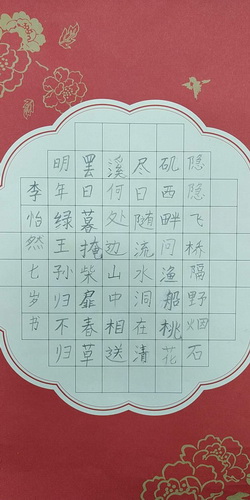 隐隐飞桥隔野烟石
矶西畔问渔船桃花
尽日随流水洞在清
溪何处边山中相送
罢日暮掩柴扉春草
明年绿王孙归不归
李怡然七岁书